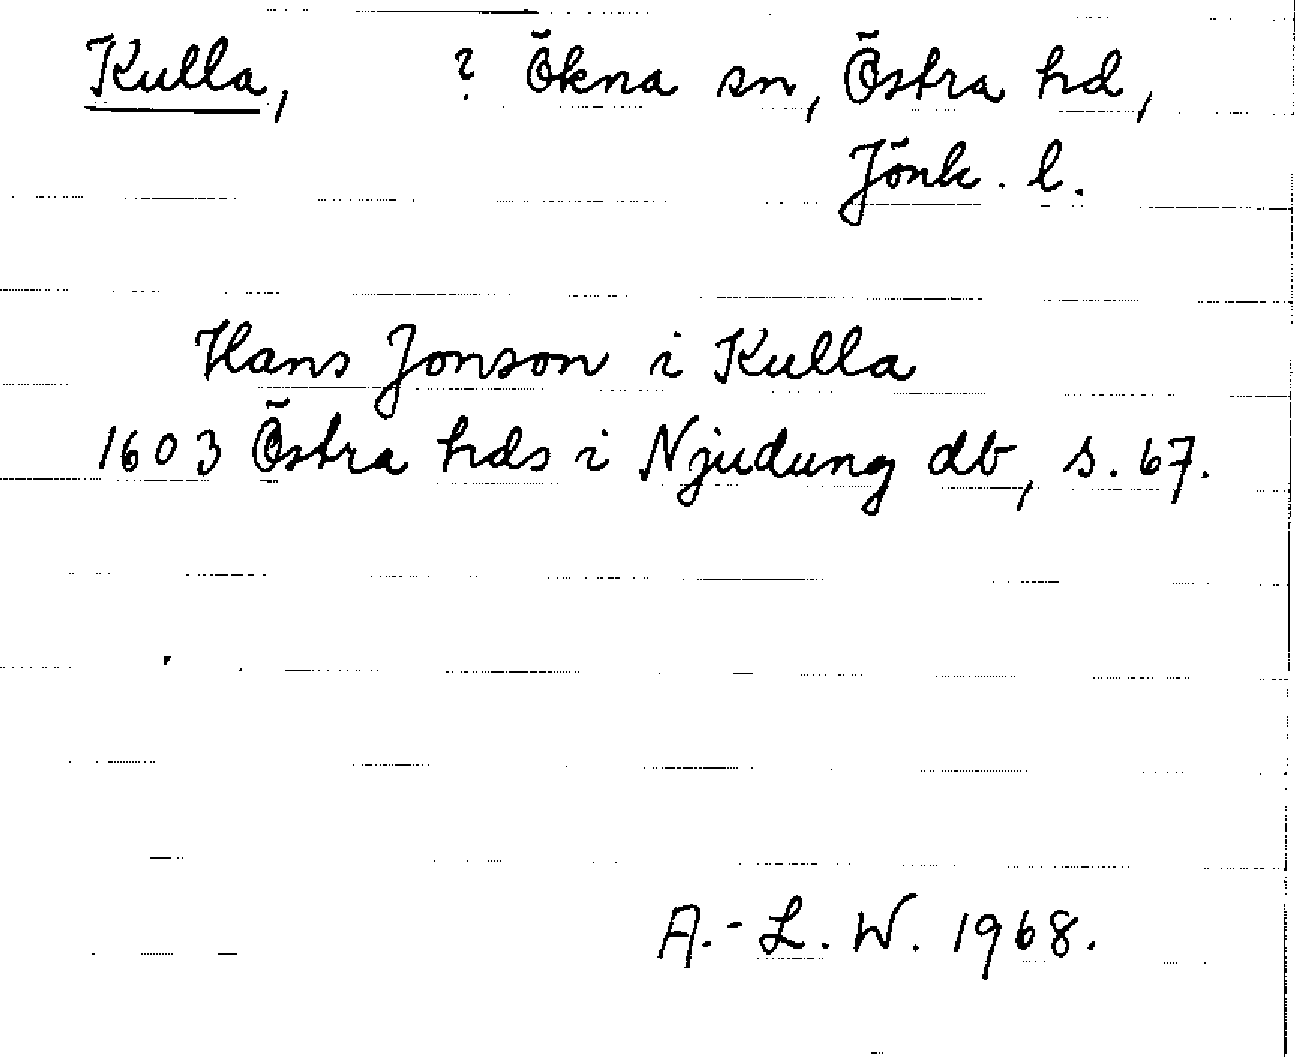 Kulla, ? Ökna sn, Östra hd,
Jönk. l.
Hans Jonson i Kulla
1603 Östra hds i Njudung db, s. 67.
A.-L. W. 1968.